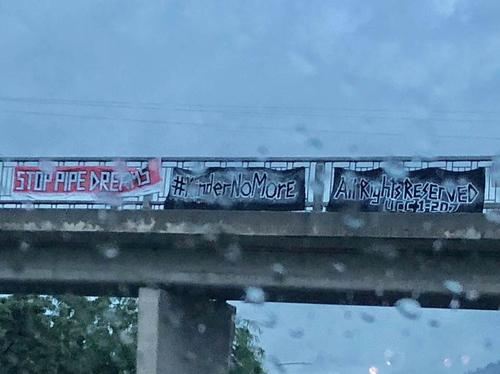 STOP PIPE DREAMS
#KinderNoMore
All Rights RESERVED
UCC 1-207